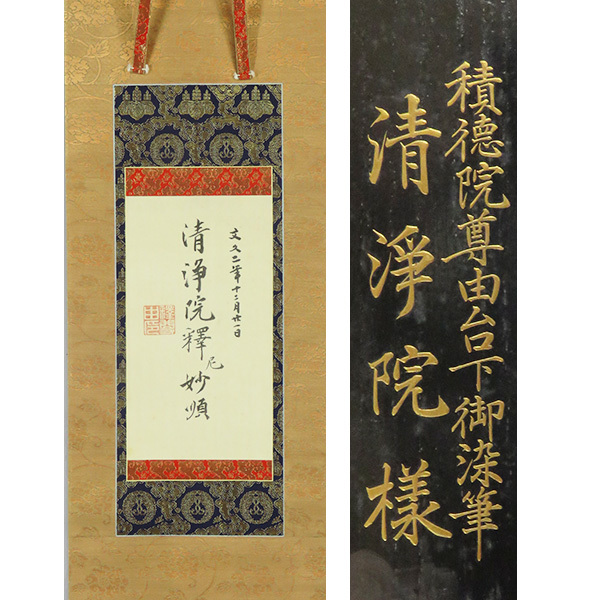 文久二年十二月廿一日
清浄院釋尼妙順
積德院尊由台下御染筆
清淨院樣